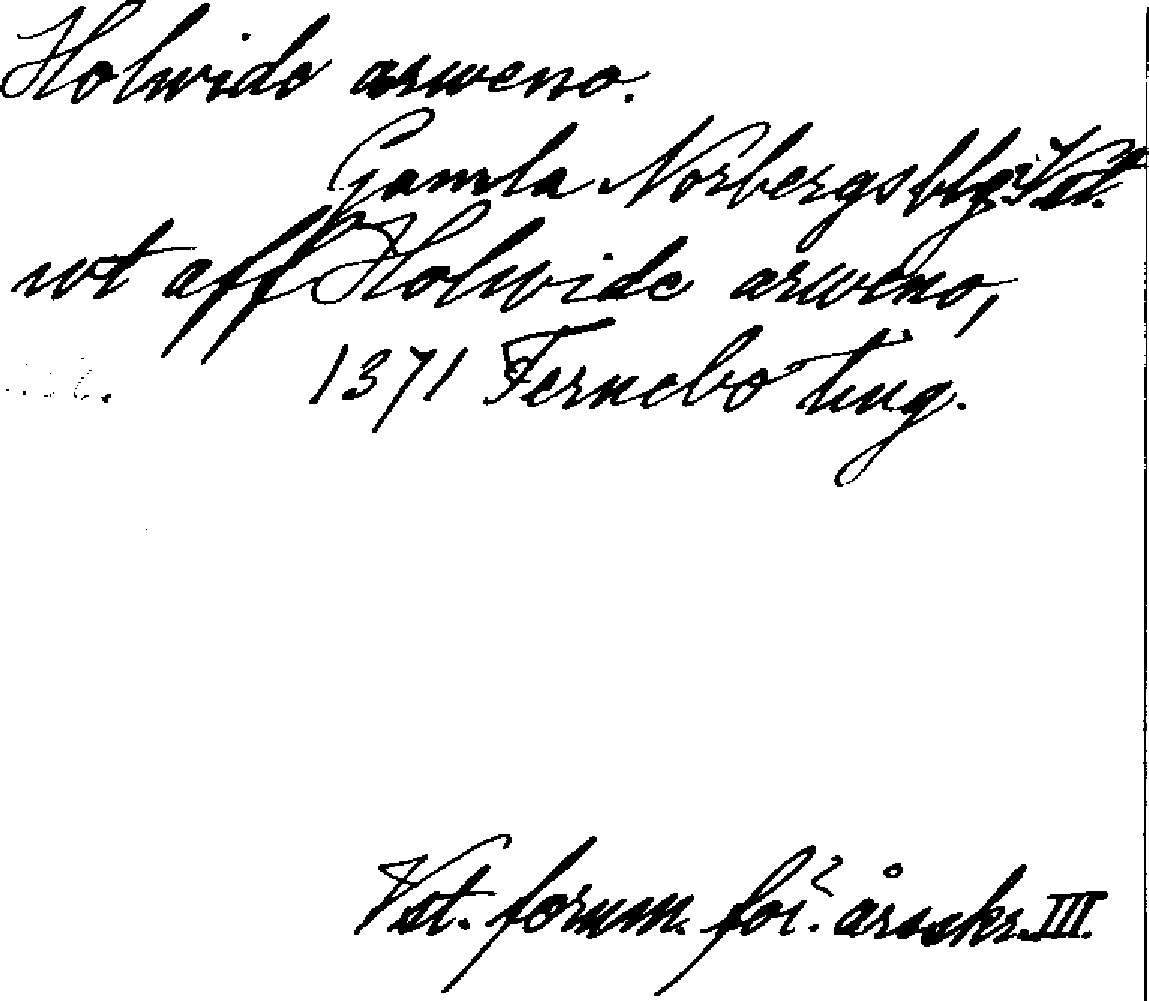 Holwide arweno.
Gamla Norbergs blg. Vst.
wt aff Holwide arweno,
1371 Fernebo ting.
Vst. fornm. för. årsskr. III.